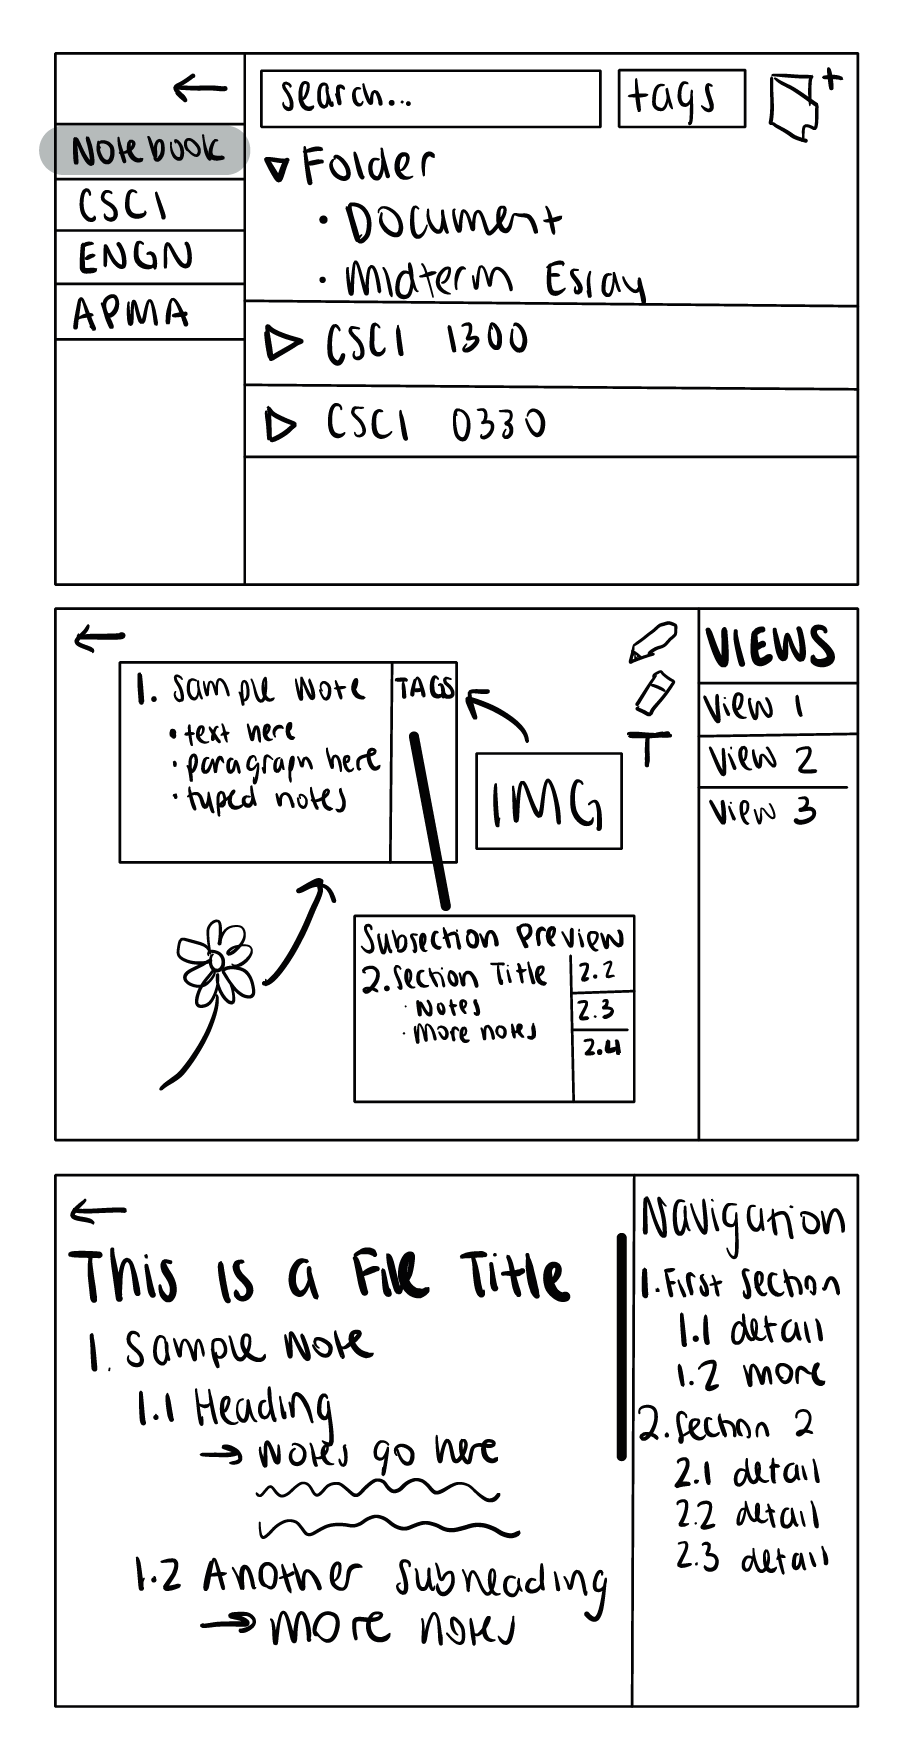 search...
tags
+
Notebook
CSCI
ENGN
APMA
Folder
• Document
• Midterm Essay
CSCI 1300
CSCI 0330
1. Sample Note
• text here
• paragraph here
• typed notes
TAGS
IMG
T
VIEWS
View 1
View 2
View 3
Subsection Preview
2. Section Title
• Notes
• More notes
2.2
2.3
2.4
This is a File Title
1. Sample Note
1.1 Heading
→ Notes go here
1.2 Another Subheading
→ More notes
Navigation
1. First Section
1.1 detail
1.2 more
2. Section 2
2.1 detail
2.2 detail
2.3 detail